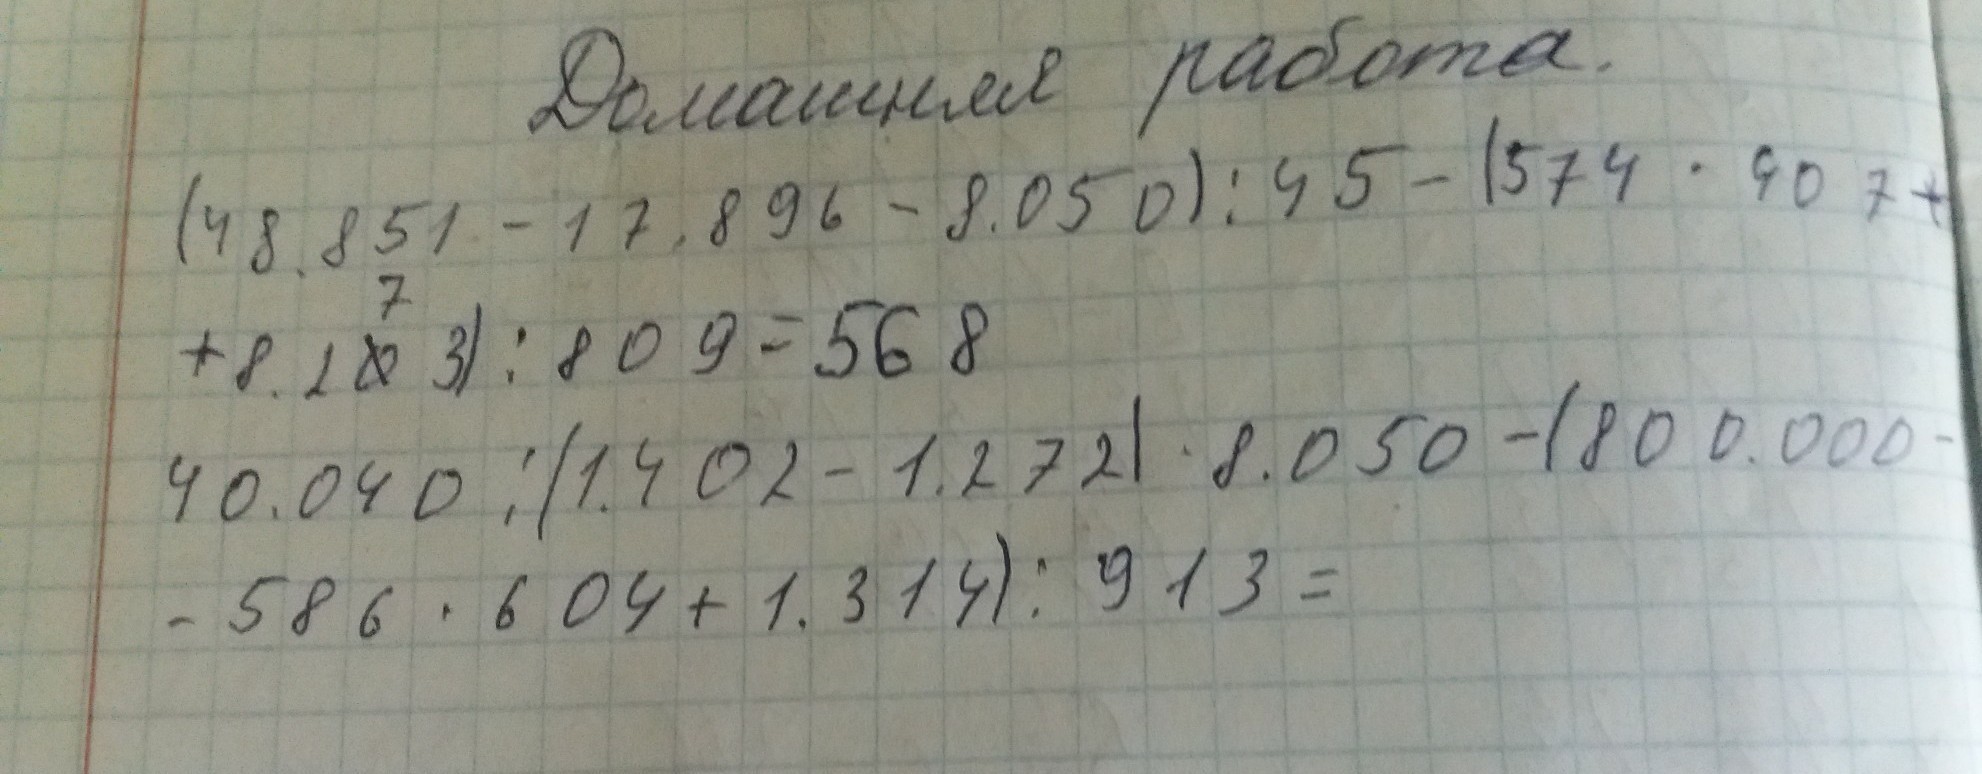 Домашняя работа.
(48.851 - 17.896 - 8.050) : 45 - (574 · 407 +
+ 8.173) : 809 = 568
40.040 : (1.402 - 1.272) · 8.050 - (800.000 -
- 586 · 604 + 1.314) : 913 =